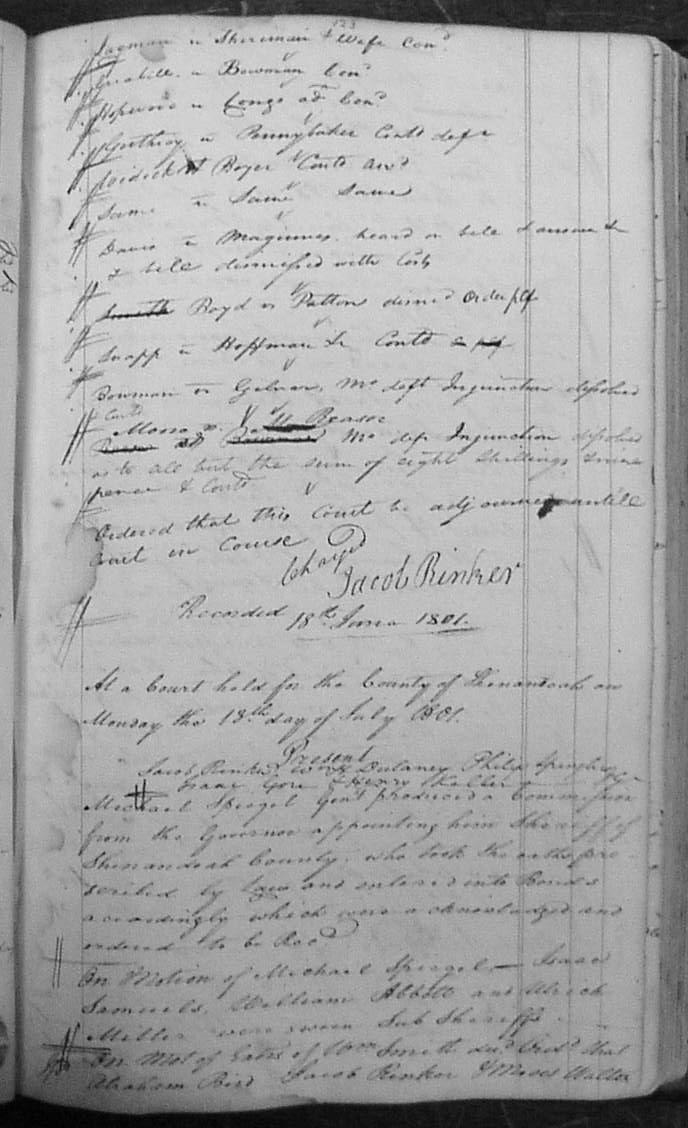 123
Layman vs Shireman & Wife Con^d.
vs Bowman Con^d
Hopewood vs Longs ad^m Con^d
vs Pennybaker Contd deft
Boyer Contd aw^d
Same vs Same Same
Davis vs Maginnes heard on bill & answer &c
& bill dismissed with Costs
Smith Boyd vs Patton dismd Order plf
Snapp vs Hoffman &c Contd
Bowman vs Gilmar, Mo deft Injunction disolved
Contd
Moore vs Reasor
Mo deft Injunction disolved
as to all but the sum of eight shillings & nine
pence & Costs
Ordered that this Court be adjourned untill
Court in Course
Jacob Rinker
Recorded 18^th June 1801.
At a Court held for the County of Shenandoah on
Monday the 13^th day of July 1801.
Present
Jacob Rinker Wm Dulaney Philip Spengler
Isaac Gore & Henry Keller
Michael Speigel Gent produced a Commission
from the Governor appointing him Sheriff of
Shenandoah County, who took the oaths pre
scribed by Law and entered into Bonds
accordingly which were acknowledged and
ordered to be Rec^d
On Motion of Michael Speigel Isaac
Samuels, William Abbott and Ulrich
Miller were sworn Sub Sheriffs.
On Mot of Exors of Wm Smith dec^d Ord^d that
Abraham Bird Jacob Rinker & Moses Walton